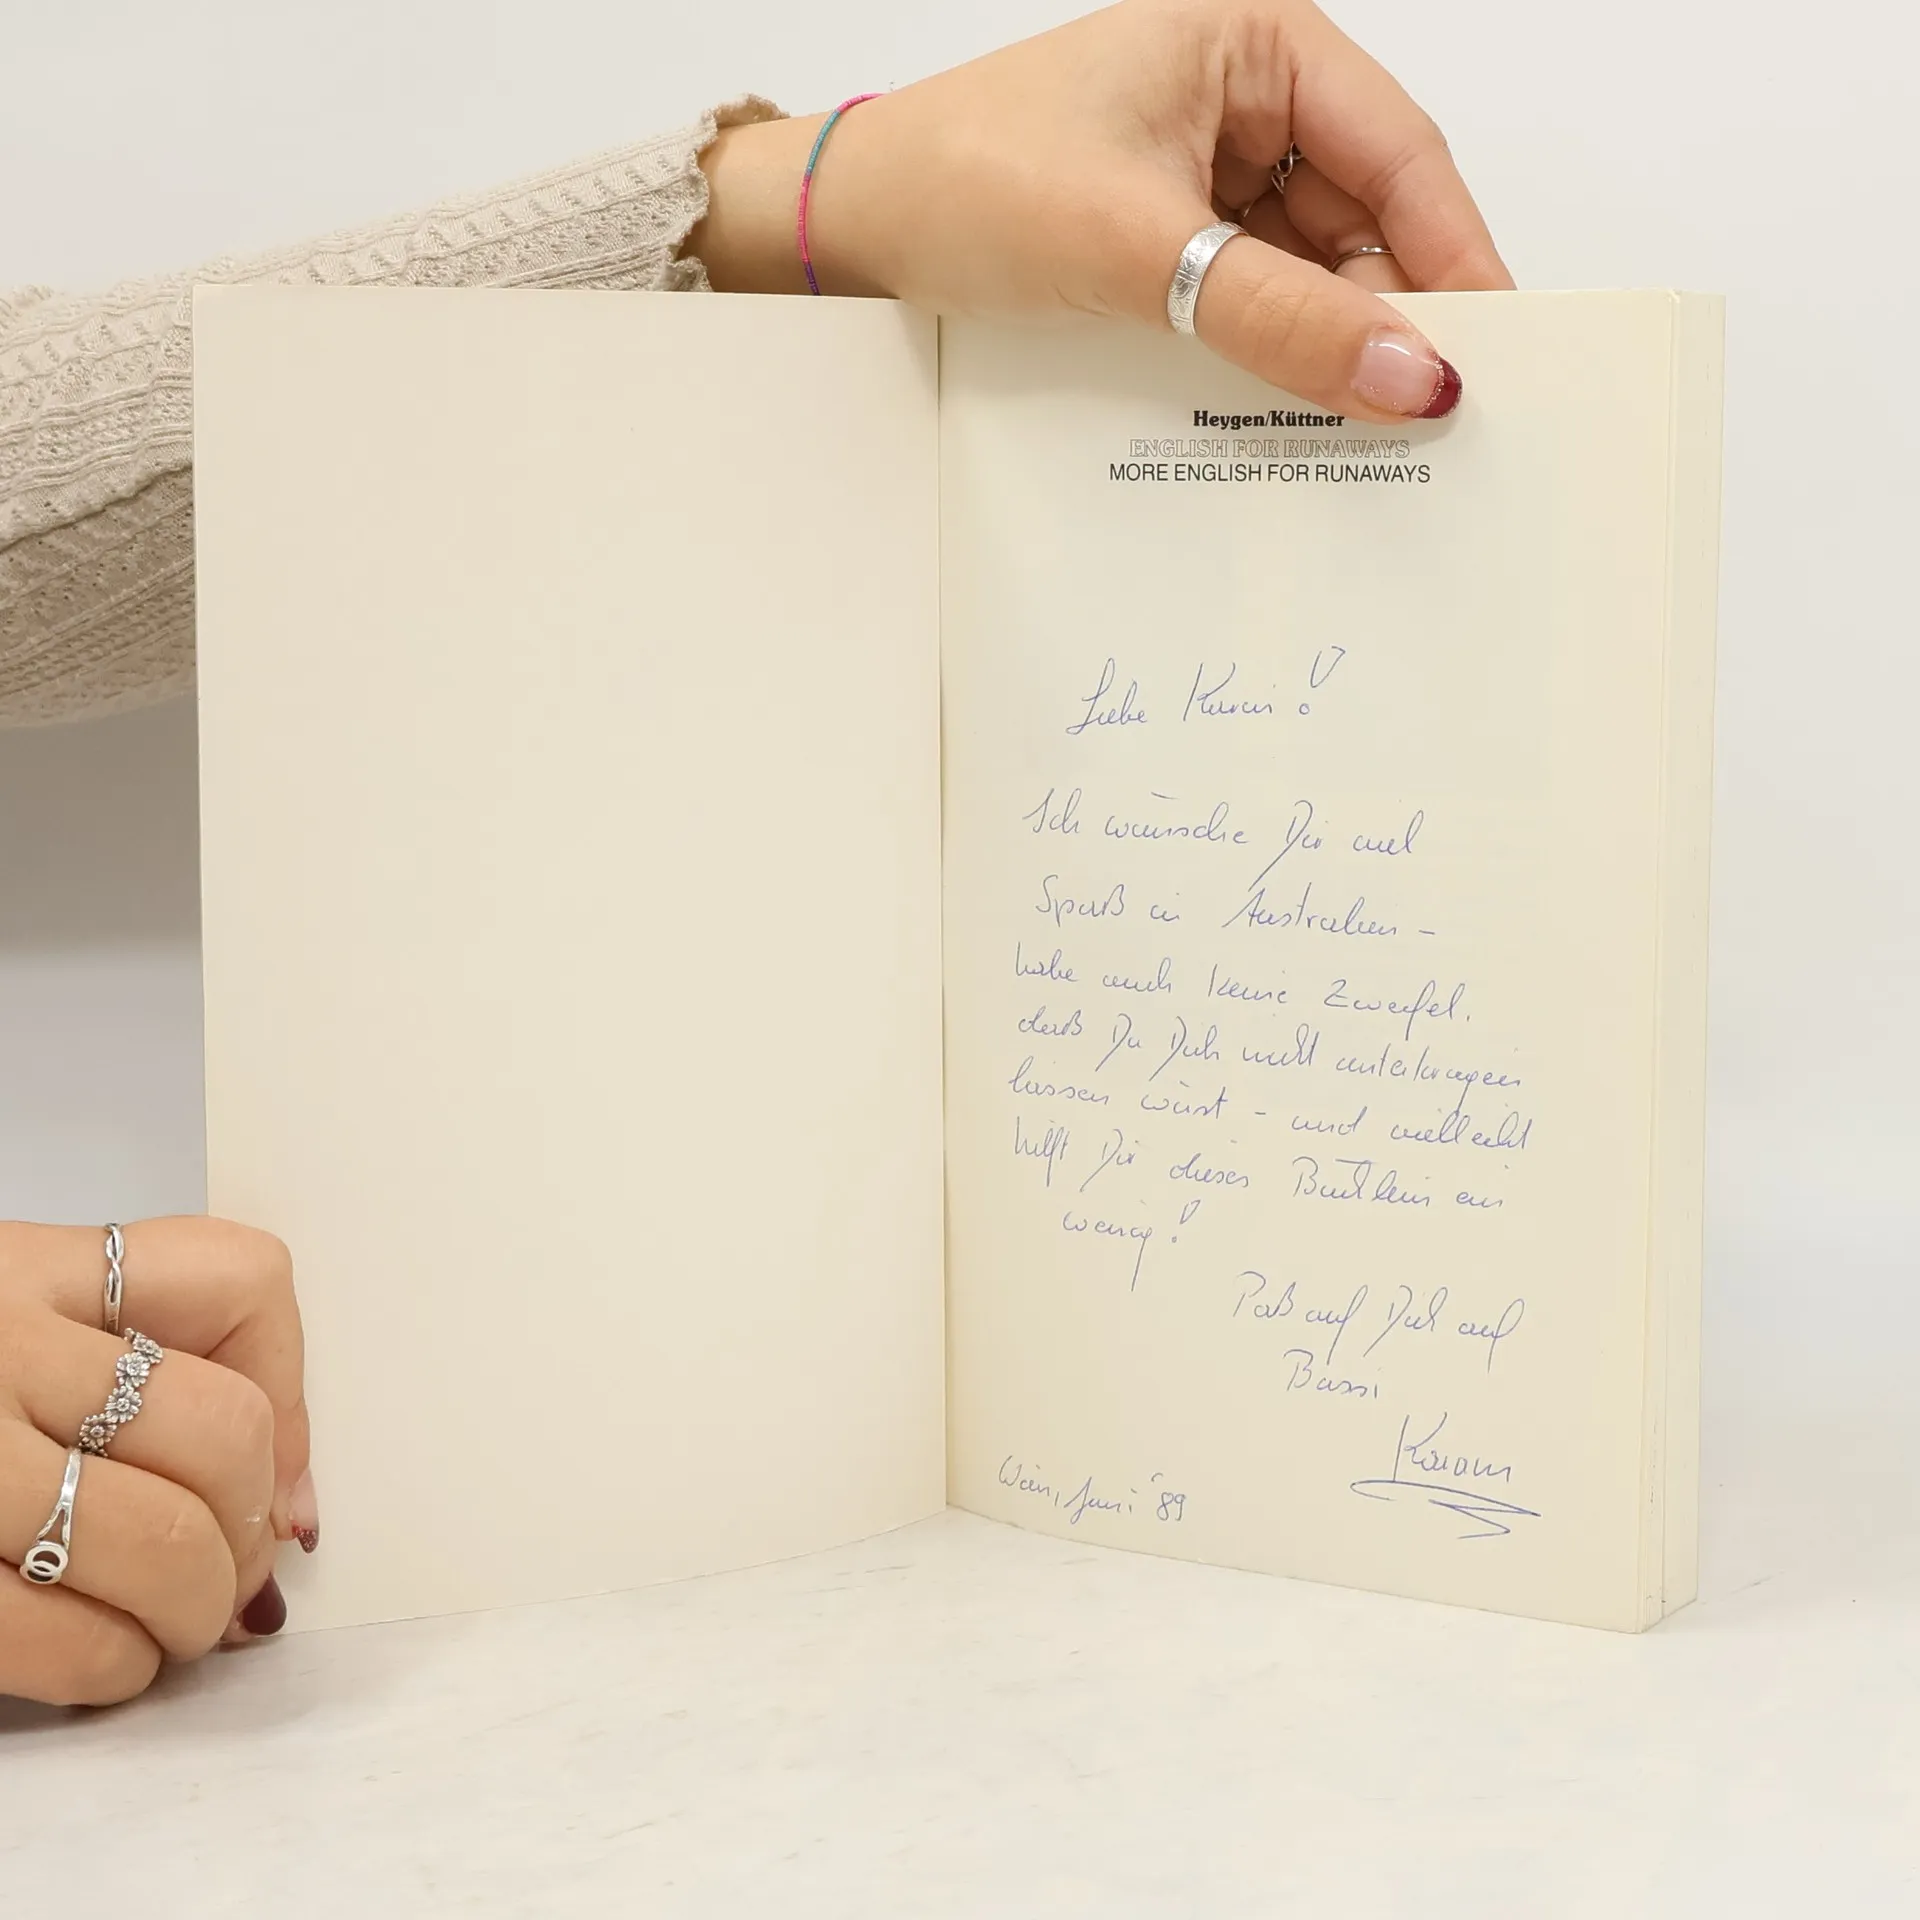 Heygen/Küttner
ENGLISH FOR RUNAWAYS
MORE ENGLISH FOR RUNAWAYS
Liebe Karin!
Ich wünsche Dir viel
Spaß in Australien –
habe auch keine Zweifel,
daß Du Dich nicht unterkriegen
lassen wirst – und vielleicht
hilft Dir dieses Büchlein ein
wenig!
Paß auf Dich auf
Bussi
Wien, Juni '89